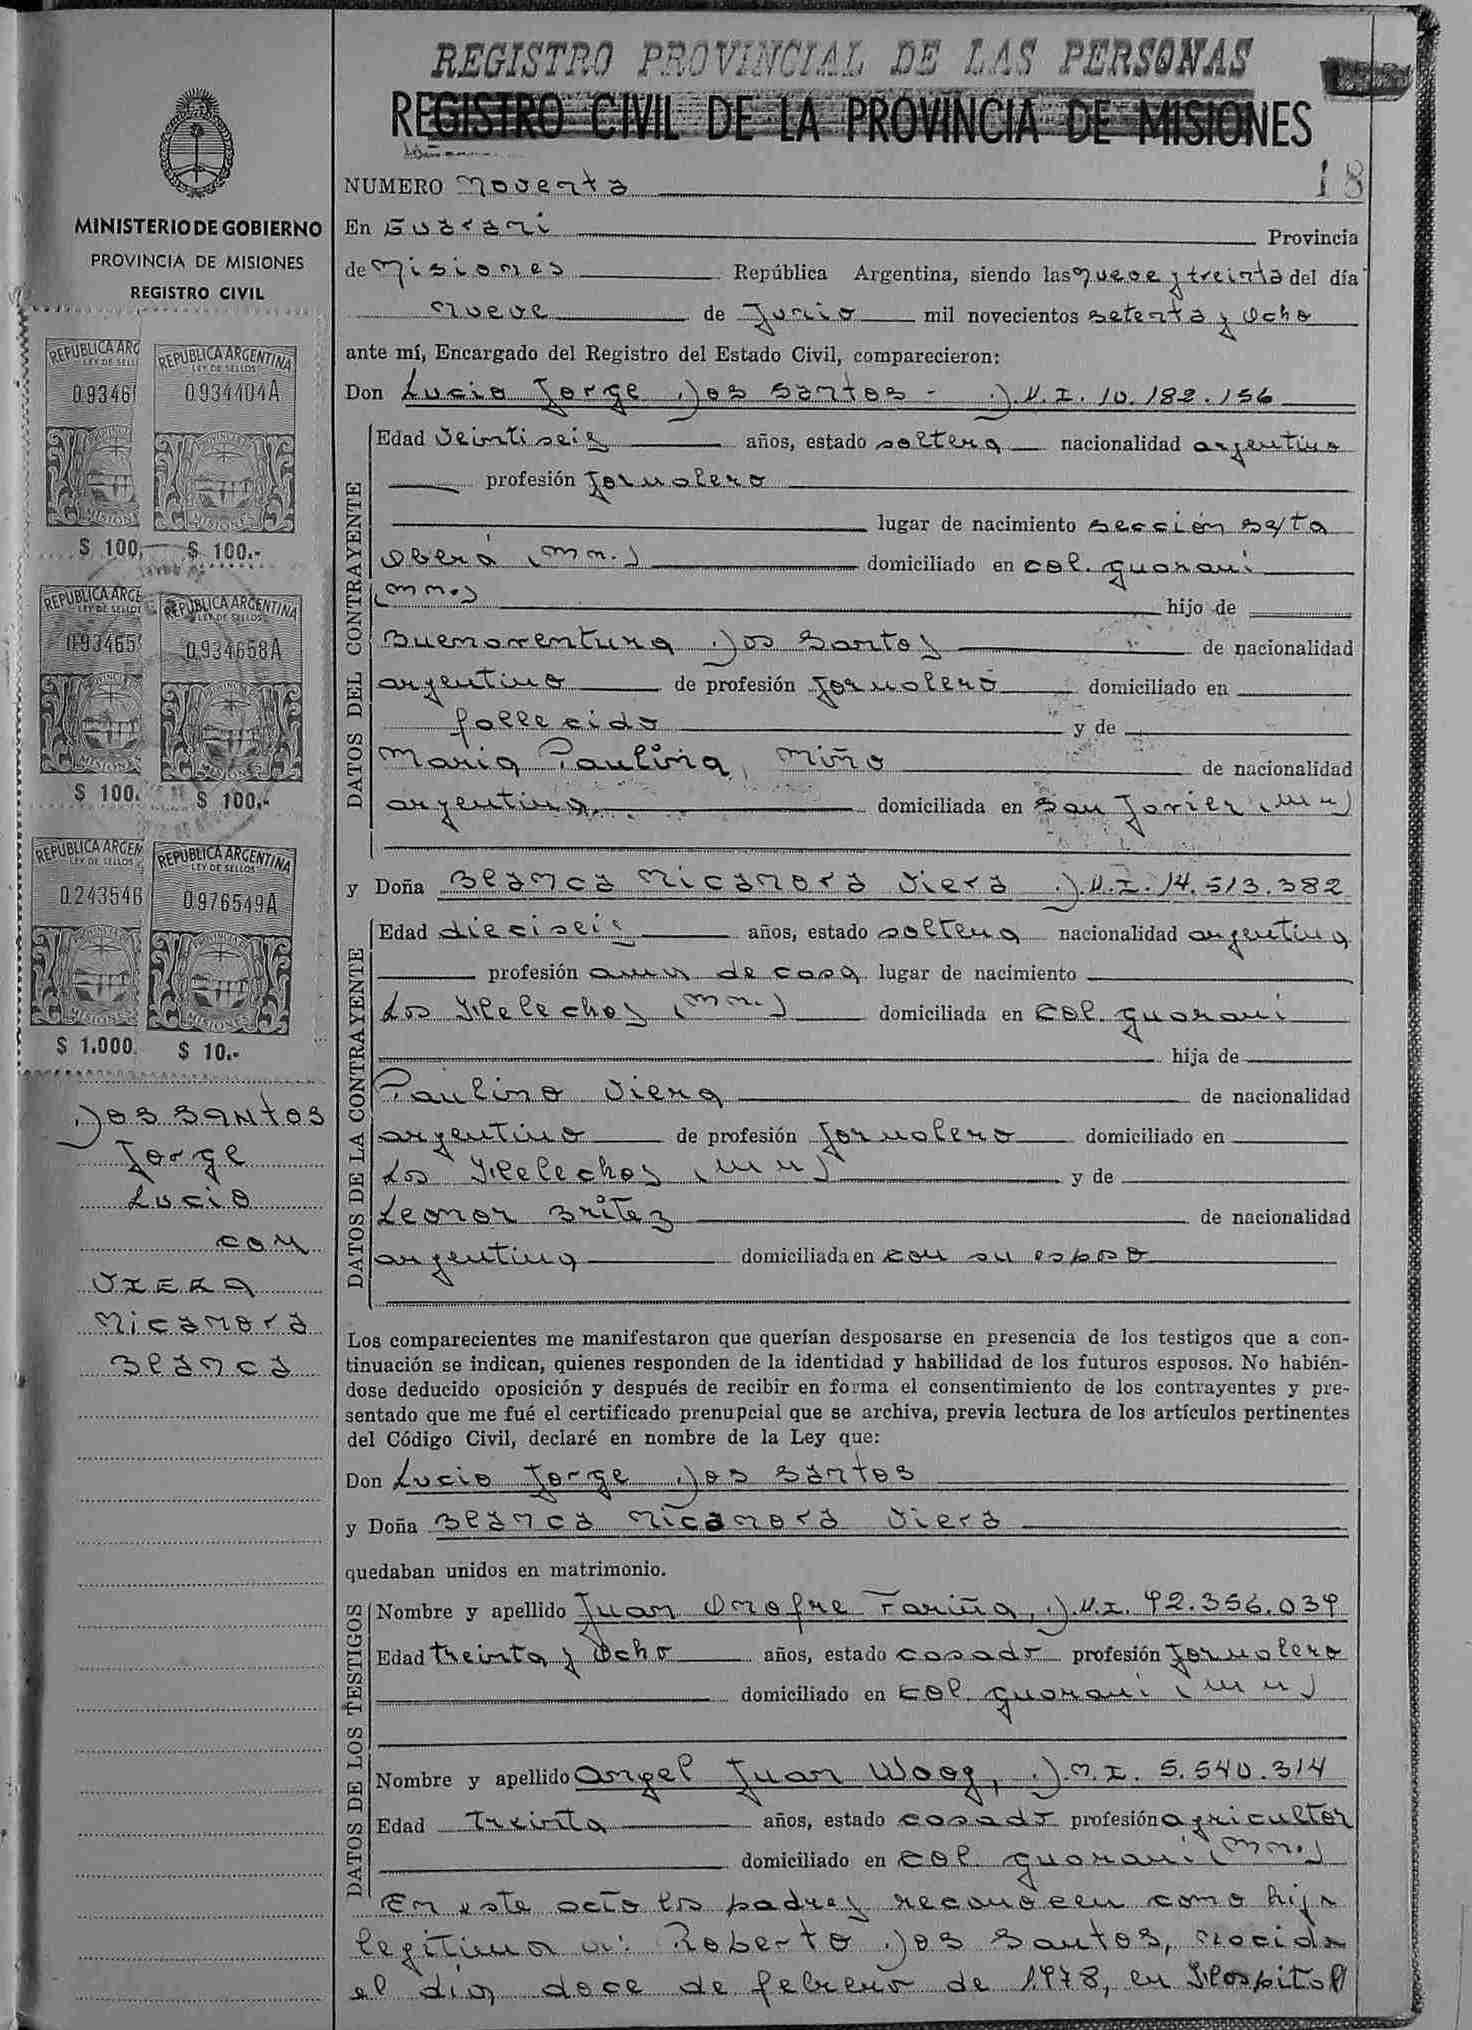 REGISTRO PROVINCIAL DE LAS PERSONAS
REGISTRO CIVIL DE LA PROVINCIA DE MISIONES
18
MINISTERIO DE GOBIERNO
PROVINCIA DE MISIONES
REGISTRO CIVIL
REPUBLICA ARG
LEY DE SELL
09346
MISION
$ 100.
REPUBLICA ARGENTINA
LEY DE SELLOS
0934404A
MISIONES
$ 100.-
REPUBLICA ARGE
LEY DE SELLOS
093465
MISIONES
$ 100.
REPUBLICA ARGENTINA
LEY DE SELLOS
0934658A
MISIONES
$ 100.-
REPUBLICA ARGEN
LEY DE SELLOS
0243546
MISIONES
$ 1.000.
REPUBLICA ARGENTINA
LEY DE SELLOS
0976549A
MISIONES
$ 10.-
Dos Santos
Jorge
Lucio
con
VIERA
Nicanora
Blanca
NUMERO Noventa
En Guaraní Provincia
de Misiones República Argentina, siendo las nueve y treinta del día
nueve de Junio mil novecientos setenta y Ocho
ante mí, Encargado del Registro del Estado Civil, comparecieron:
Don Lucio Jorge Dos Santos - D.N.I. 10.182.156
DATOS DEL CONTRAYENTE
Edad Veintiseis años, estado soltero nacionalidad argentino
profesión Jornalero
lugar de nacimiento sección sexta
Oberá (Mn.) domiciliado en Col. Guaraní
(Mn.) hijo de
Buenaventura Dos Santos de nacionalidad
argentino de profesión Jornalero domiciliado en
fallecido y de
Maria Paulina Miño de nacionalidad
argentina domiciliada en San Javier (Mn)
y Doña Blanca Nicanora Viera D.N.I. 14.513.382
DATOS DE LA CONTRAYENTE
Edad dieciseis años, estado soltera nacionalidad argentina
profesión ama de casa lugar de nacimiento
Los Helechos (Mn.) domiciliada en Col. Guaraní
hija de
Paulino Viera de nacionalidad
argentino de profesión Jornalero domiciliado en
Los Helechos (Mn) y de
Leonor Britez de nacionalidad
argentina domiciliada en con su esposo
Los comparecientes me manifestaron que querían desposarse en presencia de los testigos que a con-
tinuación se indican, quienes responden de la identidad y habilidad de los futuros esposos. No habién-
dose deducido oposición y después de recibir en forma el consentimiento de los contrayentes y pre-
sentado que me fué el certificado prenupcial que se archiva, previa lectura de los artículos pertinentes
del Código Civil, declaré en nombre de la Ley que:
Don Lucio Jorge Dos Santos
y Doña Blanca Nicanora Viera
quedaban unidos en matrimonio.
DATOS DE LOS TESTIGOS
Nombre y apellido Juan Onofre Fariña, D.N.I. 92.356.039
Edad treinta y Ocho años, estado casado profesión Jornalero
domiciliado en Col. Guaraní (Mn)
Nombre y apellido Angel Juan Woog, D.N.I. 5.540.314
Edad Treinta años, estado casado profesión agricultor
domiciliado en Col. Guaraní (Mn.)
En este acto los padres reconocen como hijo
legítimo a: Roberto Dos Santos, nacido
el día doce de febrero de 1978, en Hospital